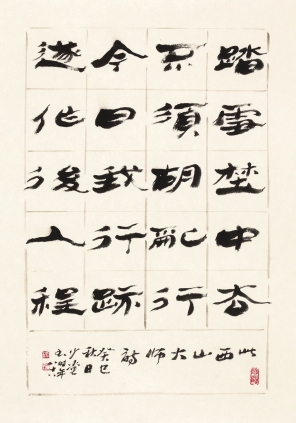 踏雪埜中去
不須胡亂行
今日我行跡
遂作後人程
此西山大师詩
癸巳
秋日